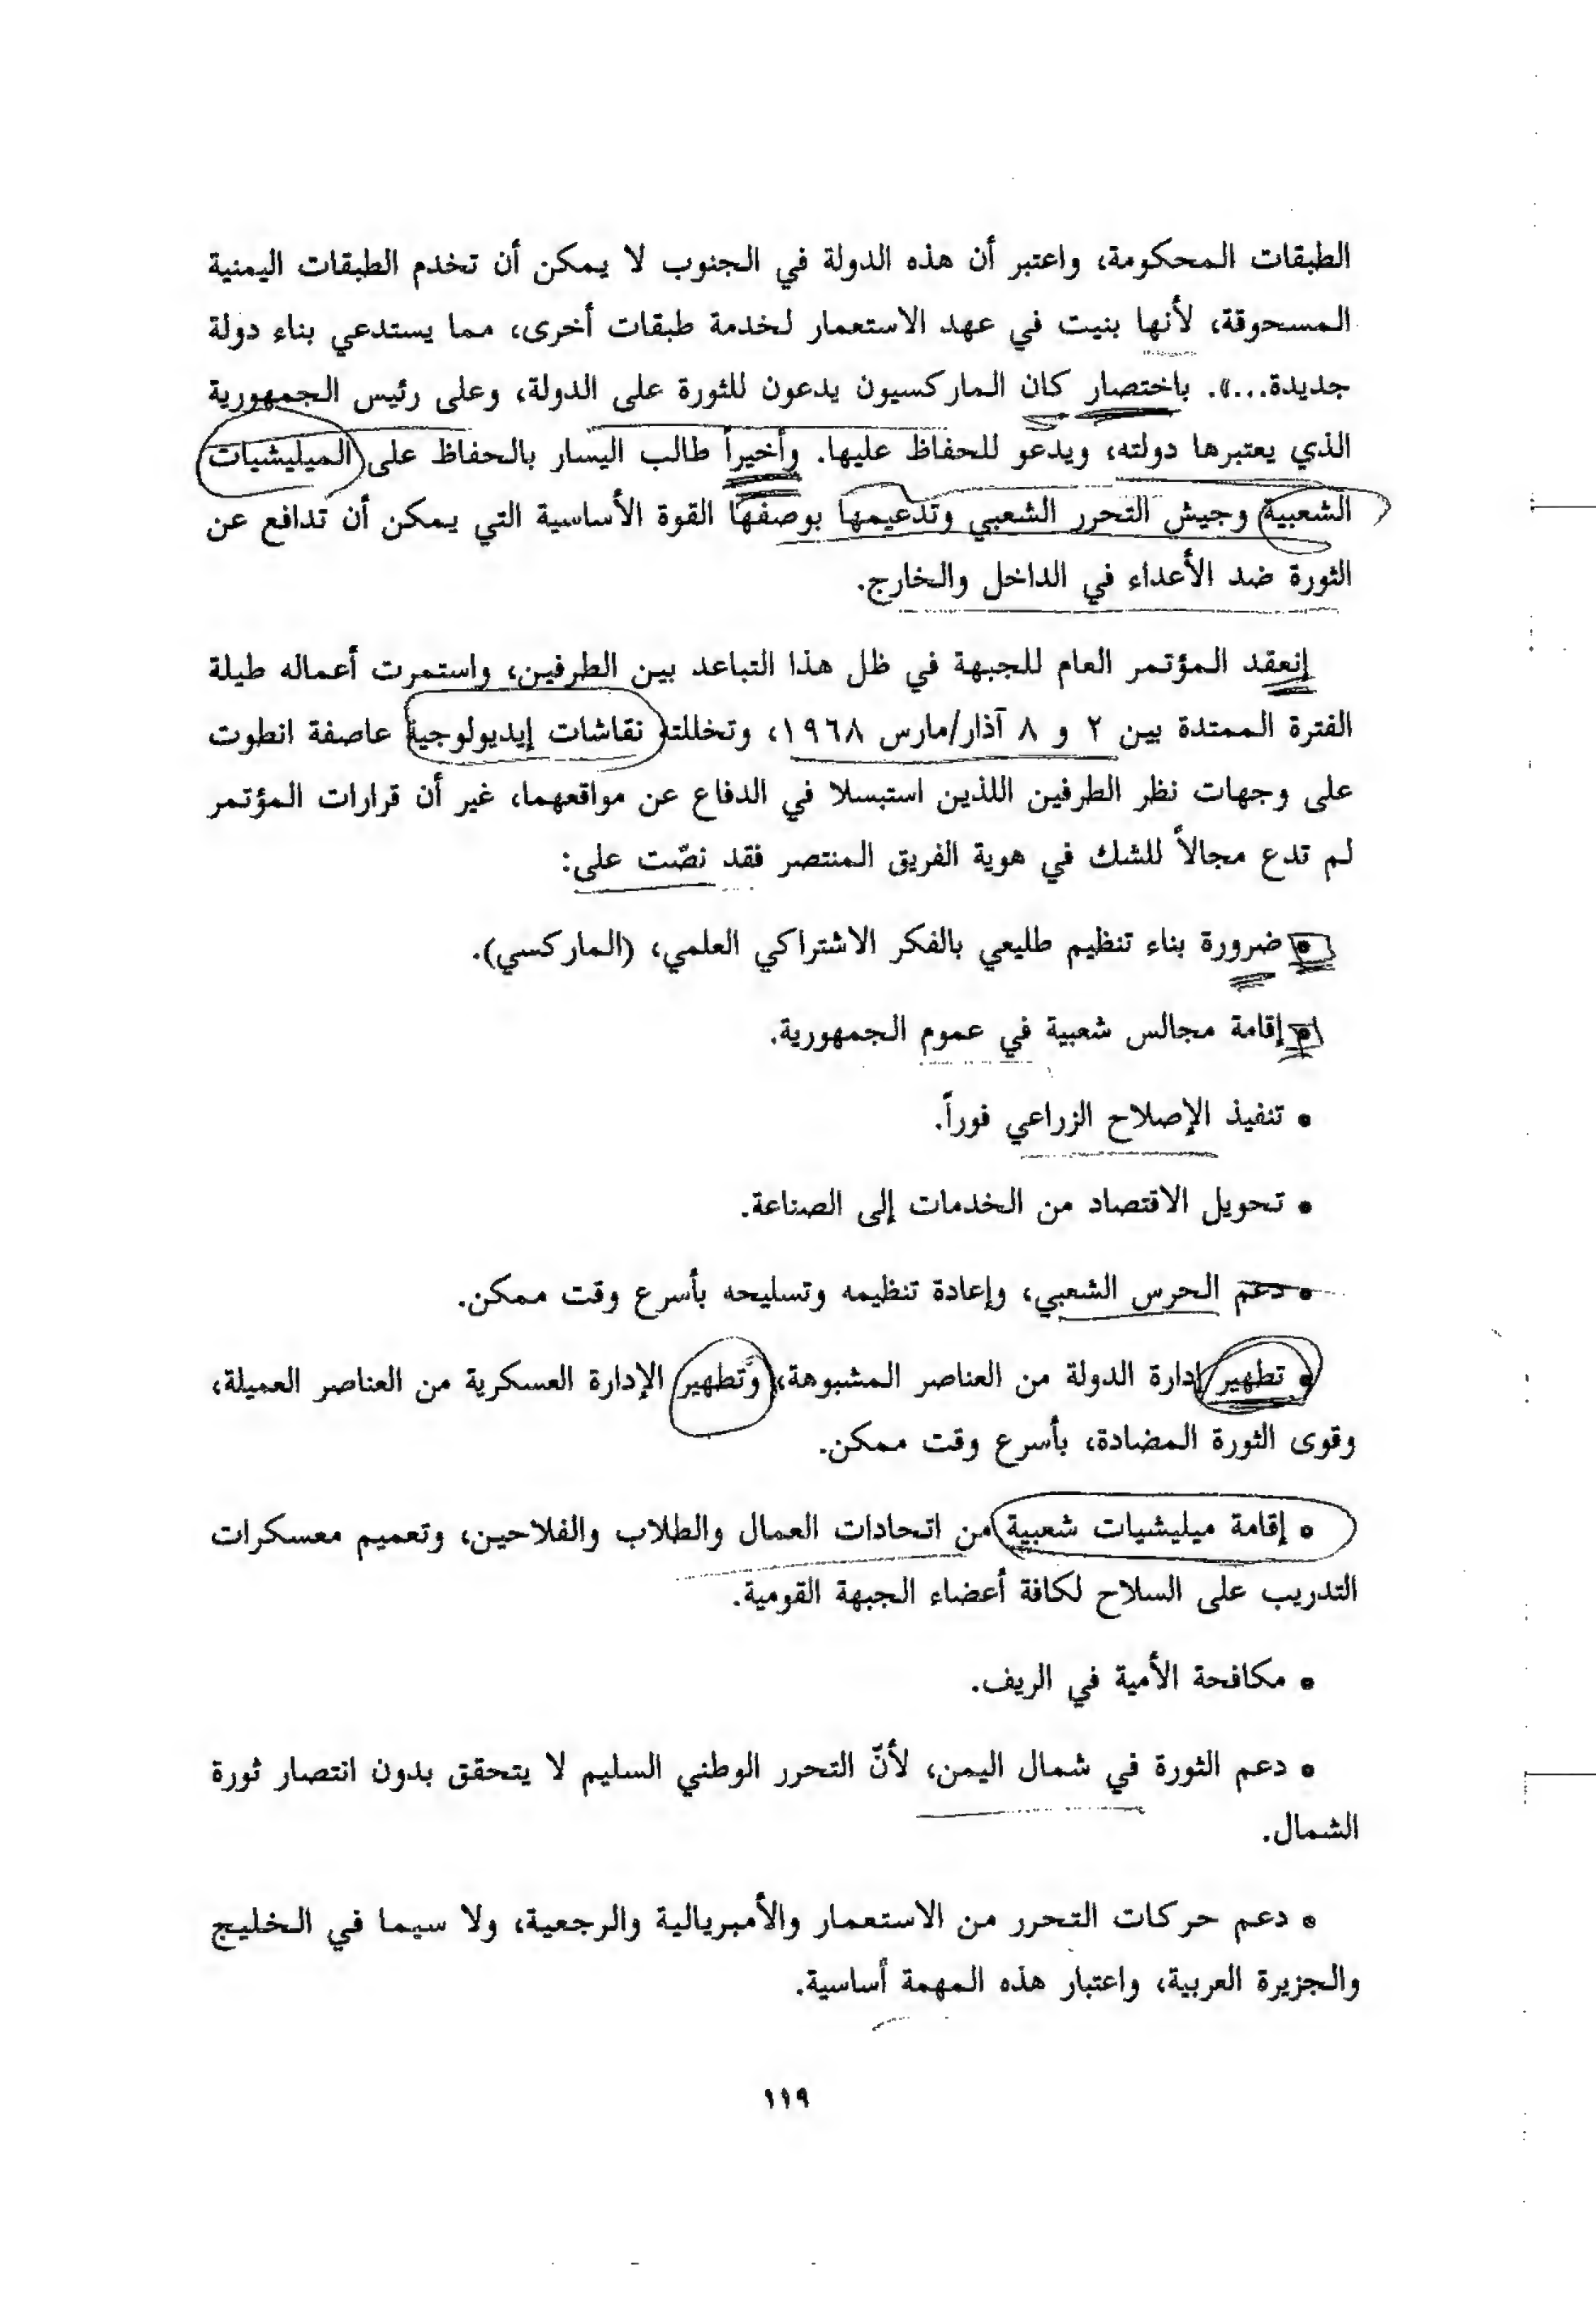 الطبقات المحكومة، واعتبر أن هذه الدولة في الجنوب لا يمكن أن تخدم الطبقات اليمنية
المسحوقة، لأنها بنيت في عهد الاستعمار لخدمة طبقات أخرى، مما يستدعي بناء دولة
جديدة...». باختصار كان الماركسيون يدعون للثورة على الدولة، وعلى رئيس الجمهورية
الذي يعتبرها دولته، ويدعو للحفاظ عليها. وأخيراً طالب اليسار بالحفاظ على الميليشيات
الشعبية وجيش التحرر الشعبي وتدعيمها بوصفها القوة الأساسية التي يمكن أن تدافع عن
الثورة ضد الأعداء في الداخل والخارج.
إنعقد المؤتمر العام للجبهة في ظل هذا التباعد بين الطرفين، واستمرت أعماله طيلة
الفترة الممتدة بين ٢ و ٨ آذار/مارس ١٩٦٨، وتخللته نقاشات إيديولوجية عاصفة انطوت
على وجهات نظر الطرفين اللذين استبسلا في الدفاع عن مواقعهما، غير أن قرارات المؤتمر
لم تدع مجالاً للشك في هوية الفريق المنتصر فقد نصّت على:
• ضرورة بناء تنظيم طليعي بالفكر الاشتراكي العلمي، (الماركسي).
• إقامة مجالس شعبية في عموم الجمهورية.
• تنفيذ الإصلاح الزراعي فوراً.
• تحويل الاقتصاد من الخدمات إلى الصناعة.
• دعم الحرس الشعبي، وإعادة تنظيمه وتسليحه بأسرع وقت ممكن.
• تطهير إدارة الدولة من العناصر المشبوهة، وتطهير الإدارة العسكرية من العناصر العميلة،
وقوى الثورة المضادة، بأسرع وقت ممكن.
• إقامة ميليشيات شعبية من اتحادات العمال والطلاب والفلاحين، وتعميم معسكرات
التدريب على السلاح لكافة أعضاء الجبهة القومية.
• مكافحة الأمية في الريف.
• دعم الثورة في شمال اليمن، لأنّ التحرر الوطني السليم لا يتحقق بدون انتصار ثورة
الشمال.
• دعم حركات التحرر من الاستعمار والأمبريالية والرجعية، ولا سيما في الخليج
والجزيرة العربية، واعتبار هذه المهمة أساسية.
١١٩